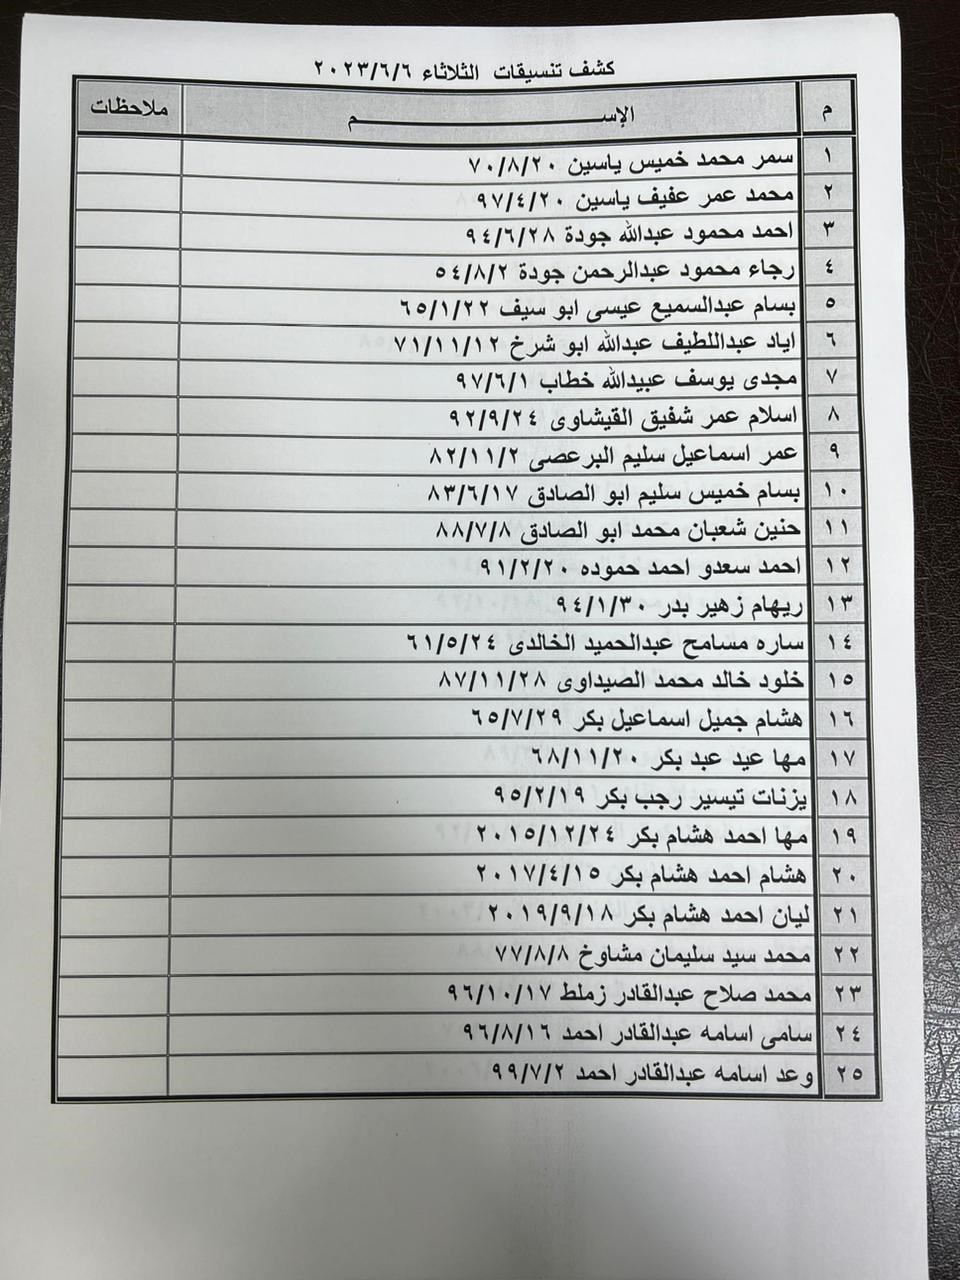 كشف تنسيقات الثلاثاء ٢٠٢٣/٦/٦
م الإســـــــم ملاحظات
١ سمر محمد خميس ياسين ٧٠/٨/٢٠
٢ محمد عمر عفيف ياسين ٩٧/٤/٢٠
٣ احمد محمود عبدالله جودة ٩٤/٦/٢٨
٤ رجاء محمود عبدالرحمن جودة ٥٤/٨/٢
٥ بسام عبدالسميع عيسى ابو سيف ٦٥/١/٢٢
٦ اياد عبداللطيف عبدالله ابو شرخ ٧١/١١/١٢
٧ مجدى يوسف عبيدالله خطاب ٩٧/٦/١
٨ اسلام عمر شفيق القيشاوى ٩٢/٩/٢٤
٩ عمر اسماعيل سليم البرعصى ٨٢/١١/٢
١٠ بسام خميس سليم ابو الصادق ٨٣/٦/١٧
١١ حنين شعبان محمد ابو الصادق ٨٨/٧/٨
١٢ احمد سعدو احمد حموده ٩١/٢/٢٠
١٣ ريهام زهير بدر ٩٤/١/٣٠
١٤ ساره مسامح عبدالحميد الخالدى ٦١/٥/٢٤
١٥ خلود خالد محمد الصيداوى ٨٧/١١/٢٨
١٦ هشام جميل اسماعيل بكر ٦٥/٧/٢٩
١٧ مها عيد عبد بكر ٦٨/١١/٢٠
١٨ يزنات تيسير رجب بكر ٩٥/٢/١٩
١٩ مها احمد هشام بكر ٢٠١٥/١٢/٢٤
٢٠ هشام احمد هشام بكر ٢٠١٧/٤/١٥
٢١ ليان احمد هشام بكر ٢٠١٩/٩/١٨
٢٢ محمد سيد سليمان مشاوخ ٧٧/٨/٨
٢٣ محمد صلاح عبدالقادر زملط ٩٦/١٠/١٧
٢٤ سامى اسامه عبدالقادر احمد ٩٦/٨/١٦
٢٥ وعد اسامه عبدالقادر احمد ٩٩/٧/٢